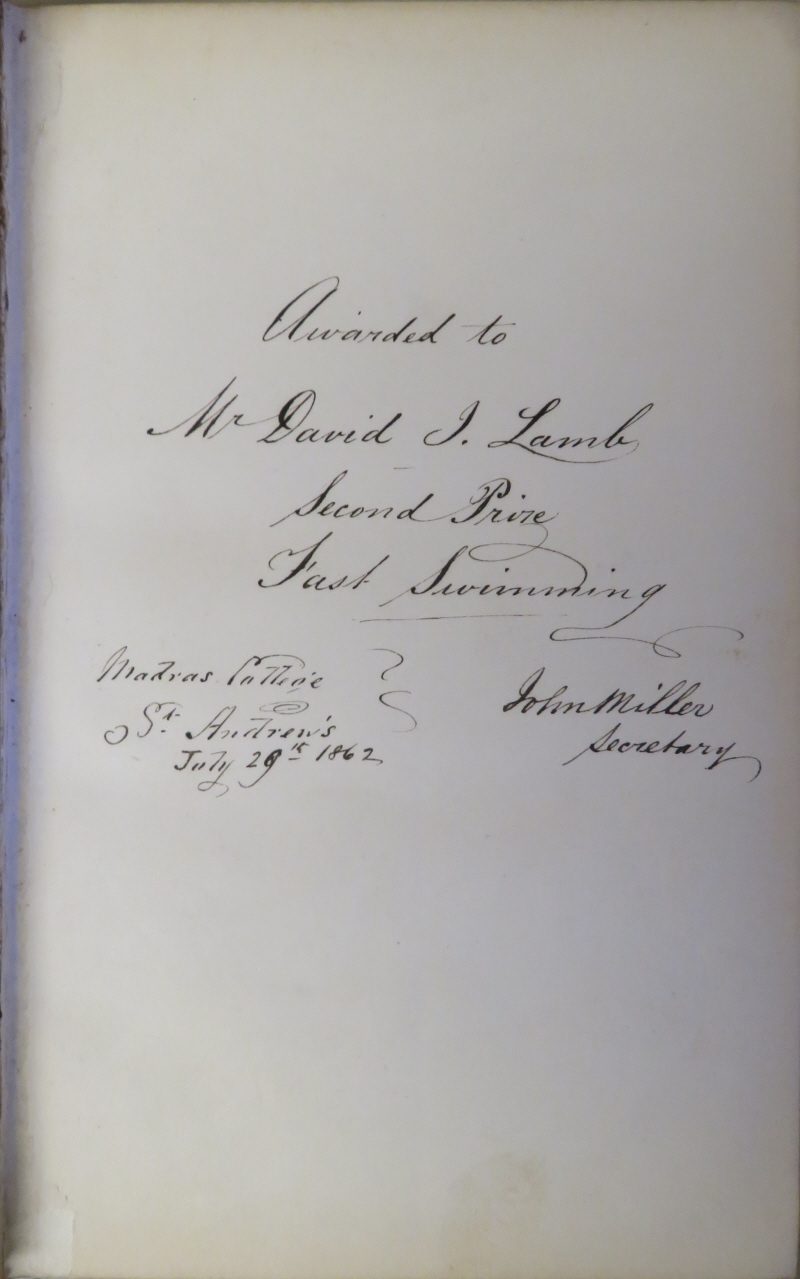 Awarded to
Mr David J. Lamb
Second Prize
Fast Swimming
Madras College
St. Andrew's
July 29th 1862
John Miller
Secretary